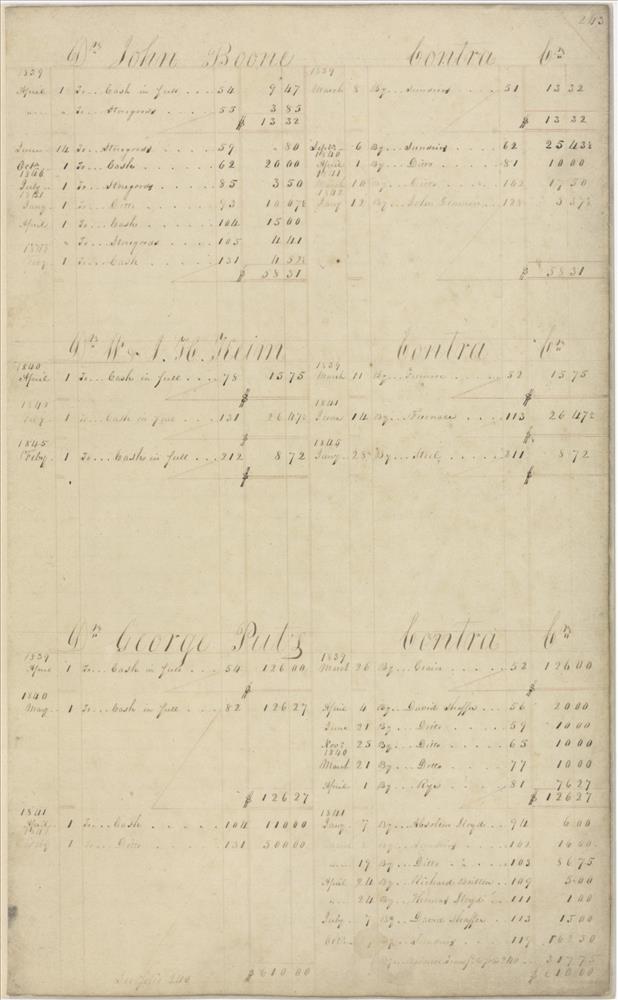 243
Drs John Boone Contra Crs
1839 1839
April 1 To... Cash in full .... 54 9 47 March 8 By... Sundries .... 51 13 32
" " To... Storegoods .... 55 3 85
$ 13 32 $ 13 32
June 14 To... Storegoods .... 59 " 80 Septr 6 By... Sundries .... 62 25 43½
Octr 1 To... Cash .... 62 20 00 1840 April 1 By... Ditto .... 81 10 00
1840 July 1 To... Storegoods .... 85 3 50 1841 March 10 By... Ditto .... 102 17 50
1841 Jany 1 To... Ditto .... 93 10 07½ Jany 12 By... John 128 5 37½
April 1 To... Cash .... 104 15 00
" To... Storegoods .... 105 4 41
1 To... Cash .... 131 4 52½
$ 58 31 $ 58 31
Drs W & J. H. Keim Contra Crs
1840 1839
April 1 To... Cash in full .... 78 15 75 March 11 By... Furnace .... 52 15 75
$ $
1841
1 To... Cash in full .... 131 26 47½ June 14 By... Furnace .... 113 26 47½
$ $
1845 1845
Feby 1 To... Cash in full .... 212 8 72 Jany 28 By... Steel .... 211 8 72
$ $
Drs George Putz Contra Crs
1839 1839
April 1 To... Cash in full .... 54 126 00 March 26 By... Grain .... 52 126 00
$ $
1840
May 1 To... Cash in full .... 82 126 27 April 4 By... David Shaffer .. 56 20 00
June 21 By... Ditto .... 59 10 00
Novr 25 By... Ditto .... 65 10 00
1840
March 21 By... Ditto .... 77 10 00
April 1 By... Rye .... 81 76 27
$ 126 27 $ 126 27
1841 1841
April 1 To... Cash .... 104 110 00 Jany 7 By... Absolem Lloyd .. 94 6 00
1 To... Ditto .... 131 500 00 By... Sundries .... 102 16 00
" 19 By... Ditto .... 103 86 75
April 24 By... Richard Britten .. 109 5 00
" 24 By... Thomas Lloyd .. 111 1 00
July 7 By... David Shaffer .. 113 15 00
Octr By... Sundries .... 119 162 50
240 .... 317 75
See folio 240 $ 610 00 $ 610 00